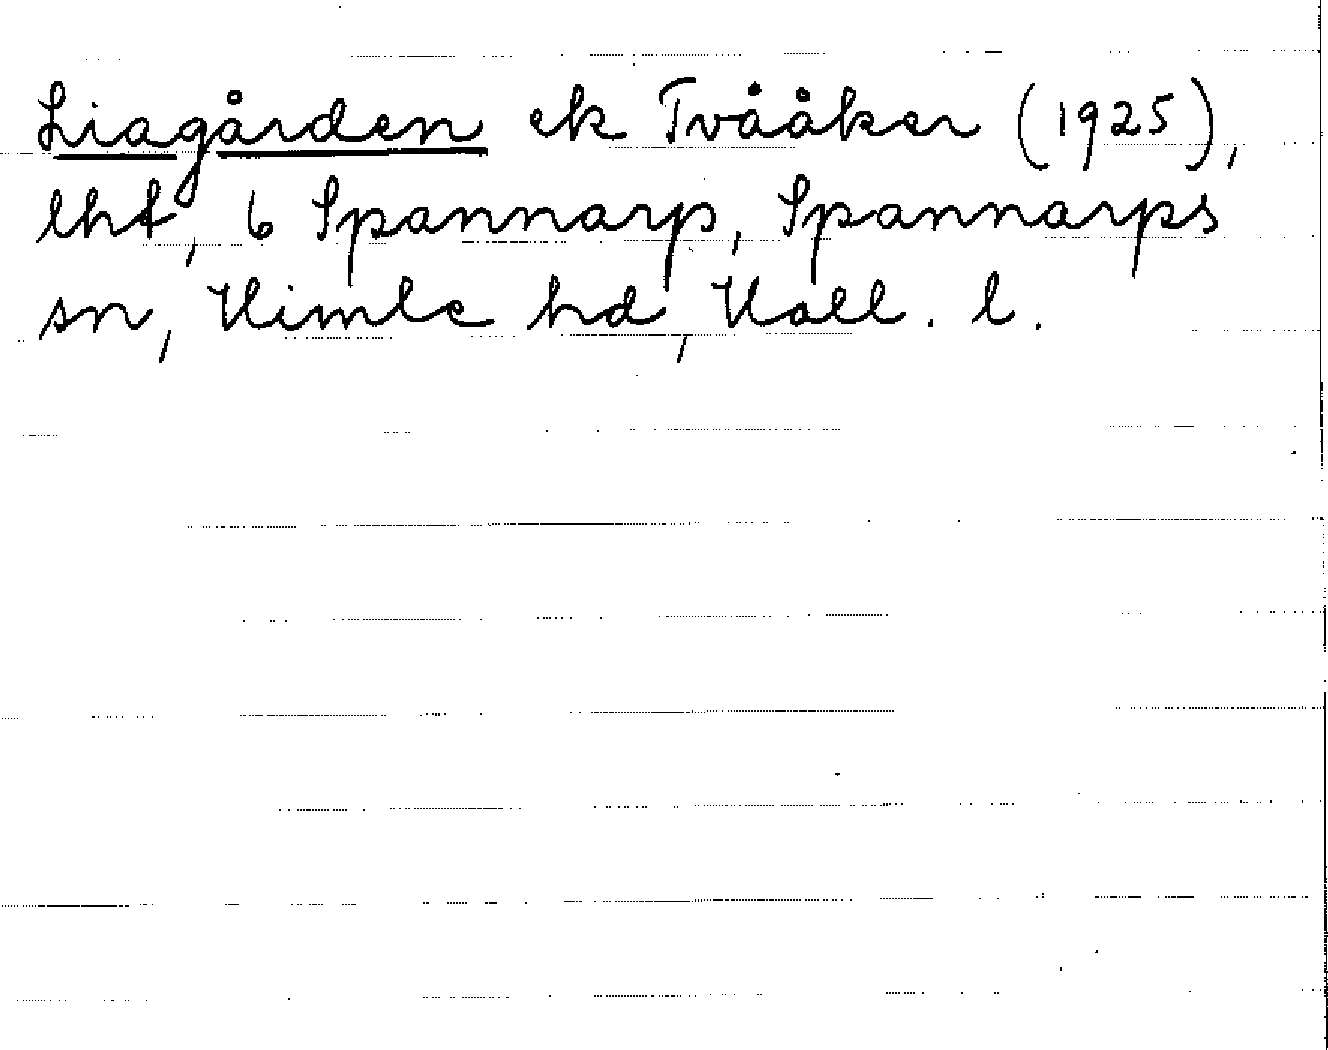 Liagården ek Tvååker (1925),
lht, 6 Spannarp, Spannarps
sn, Himle hd, Hall. l.